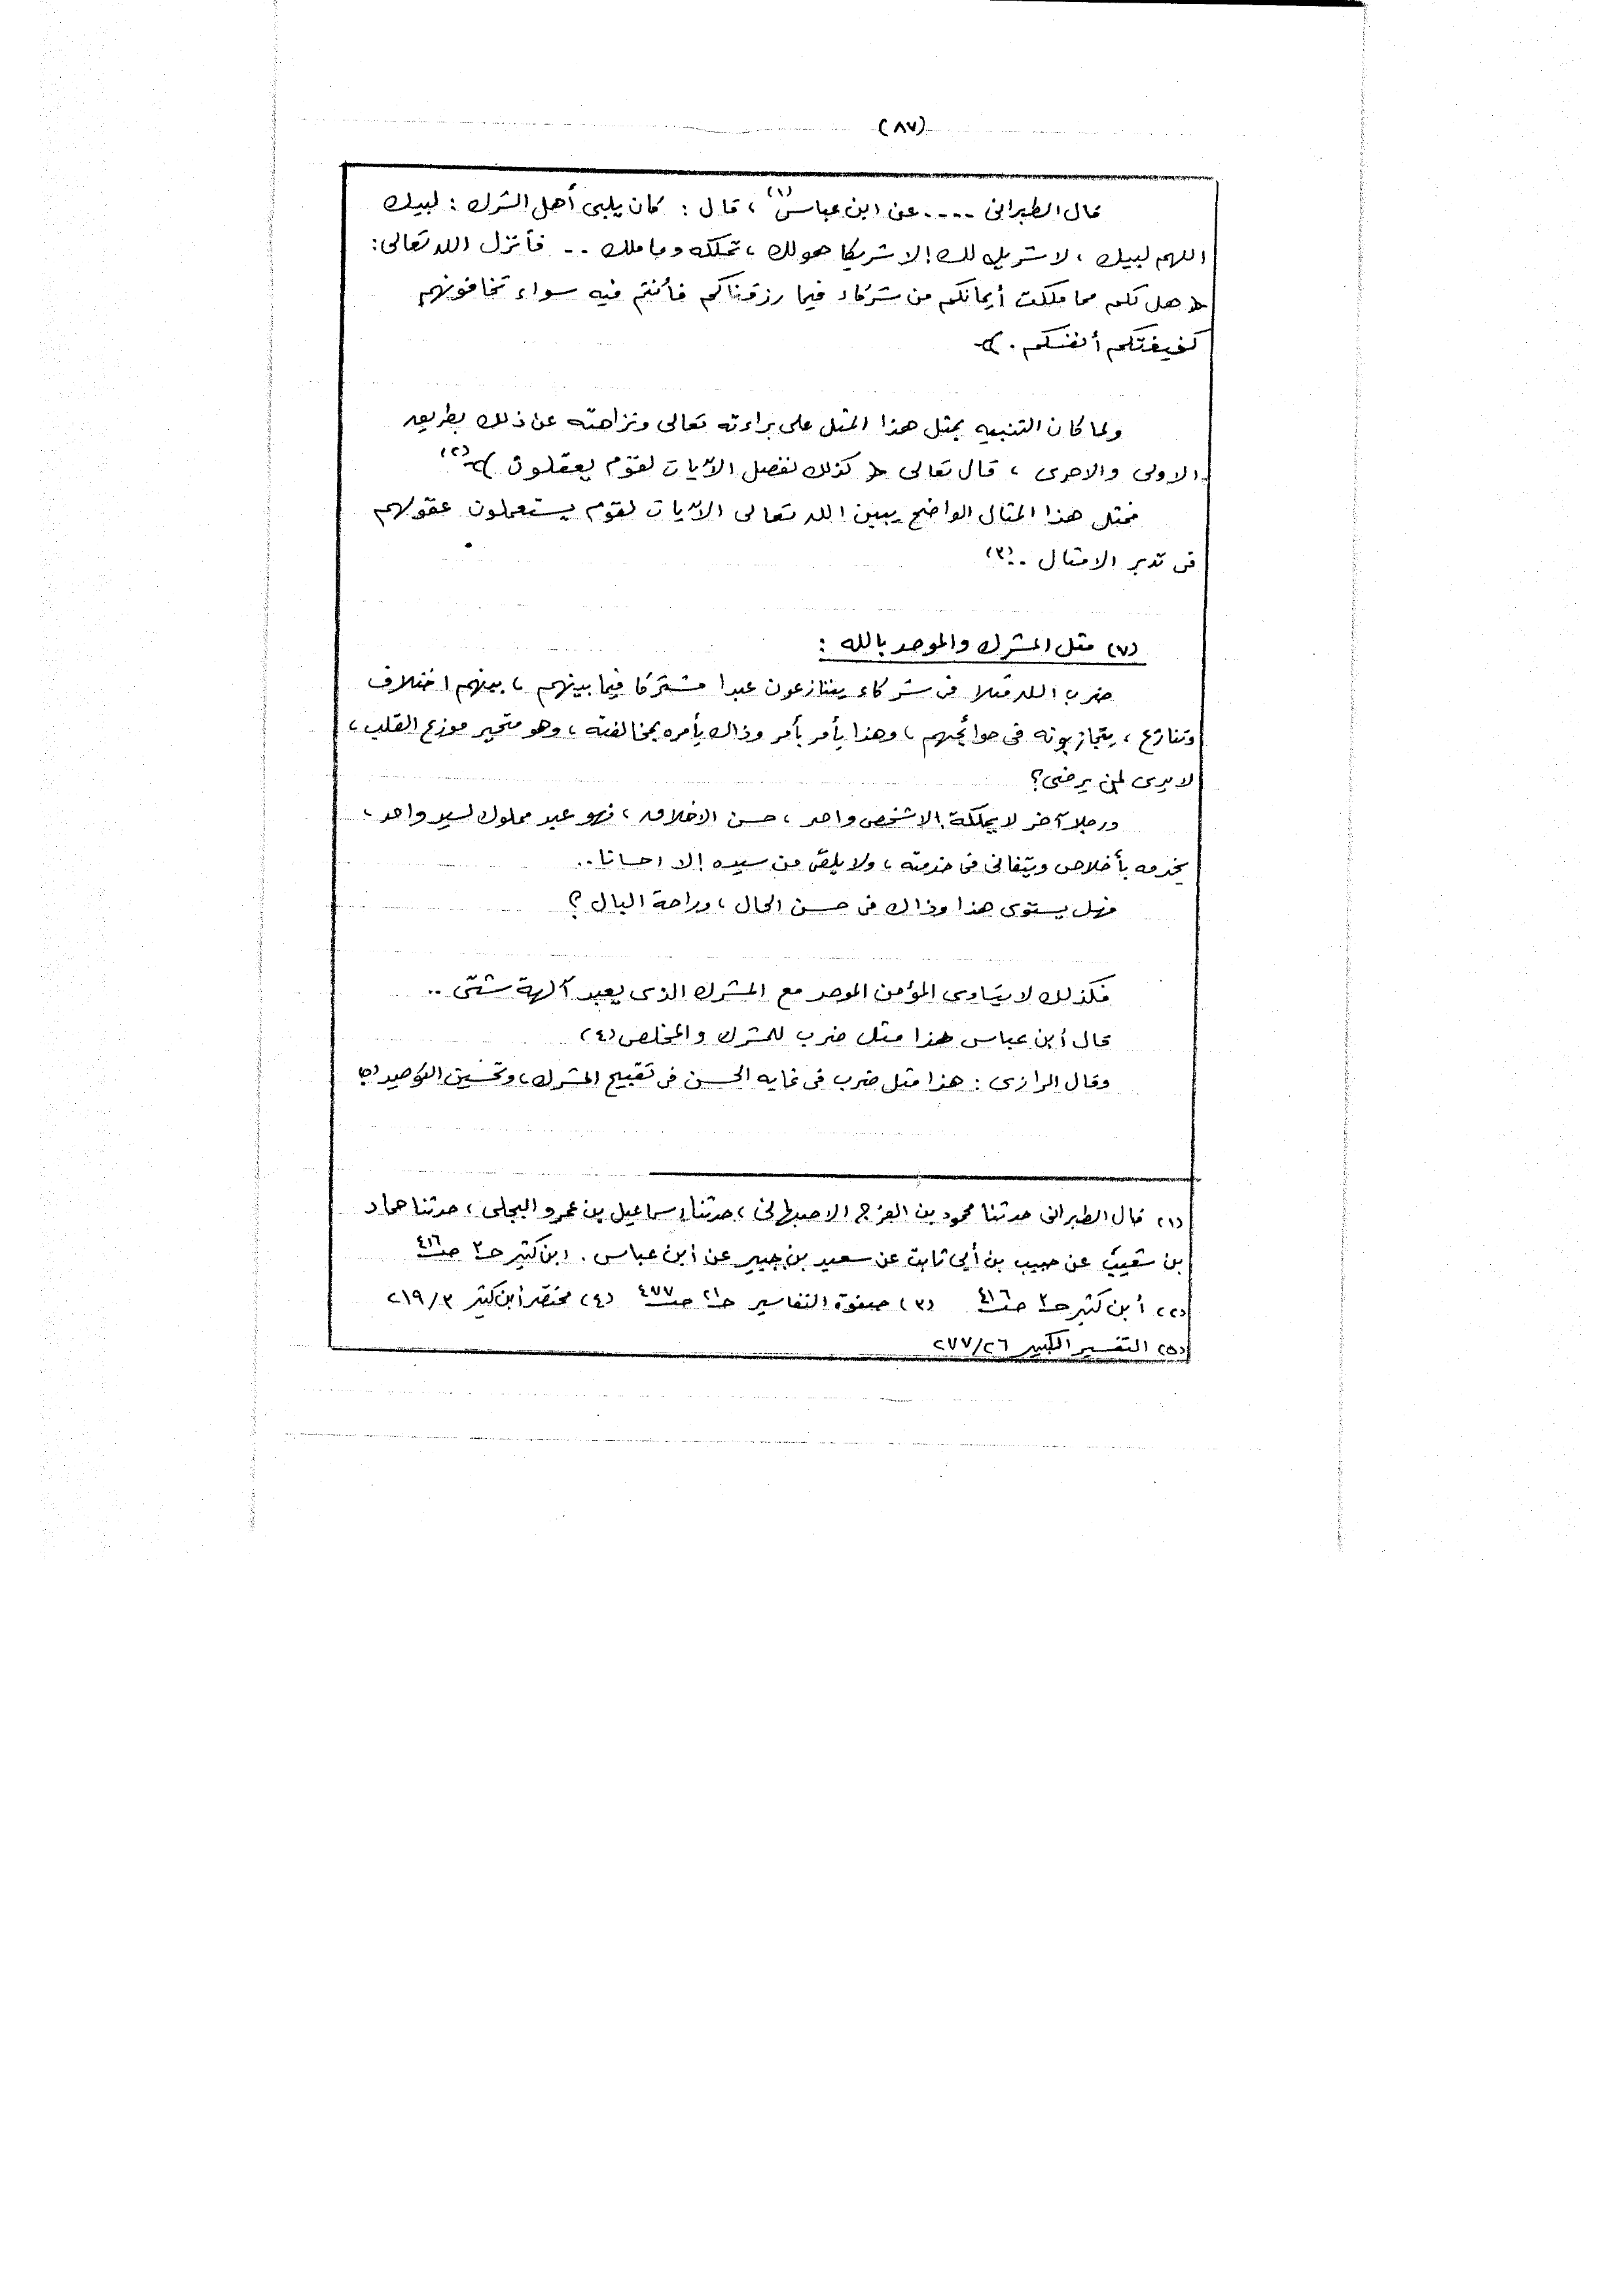 (٨٧)
قال الطبرانى ---- عن ابن عباس(١) ، قال : كان يلبى أهل الشرك : لبيك
اللهم لبيك ، لا شريك لك إلا شريكا هو لك ، تملكه وما ملك .. فأنزل الله تعالى :
﴿ هل لكم مما ملكت أيمانكم من شركاء فيما رزقناكم فأنتم فيه سواء تخافونهم
كخيفتكم أنفسكم . ﴾
ولما كان التنبيه بمثل هذا المثل على براءته تعالى ونزاهته عن ذلك بطريق
الاولى والاحرى ، قال تعالى ﴿ كذلك نفصل الآيات لقوم يعقلون ﴾(٢)
فمثل هذا المثال الواضح يبين الله تعالى الآيات لقوم يستعملون عقولهم
فى تدبر الامثال ..(٣)
(٧) مثل المشرك والموحد بالله :
ضرب الله مثلا فى شركاء يتنازعون عبدا مشتركا فيما بينهم ، بينهم اختلاف
وتنازع ، يتجاذبونه فى حوائجهم ، وهذا يأمر بأمر وذاك يأمره بمخالفته ، وهو متحير موزع القلب ،
لا يدرى لمن يرضى؟
ورجلا آخر لا يملكه إلا شخص واحد ، حسن الاخلاق ، فهو عبد مملوك لسيد واحد ،
يخدمه بأخلاص ويتفانى فى خدمته ، ولا يلقى من سيده إلا احسانا ..
فهل يستوى هذا وذاك فى حسن الحال ، وراحة البال ؟
فكذلك لا يتساوى المؤمن الموحد مع المشرك الذى يعبد آلهة شتّى ..
قال أبن عباس هذا مثل ضرب للمشرك والمخلص (٤)
وقال الرازى : هذا مثل ضرب فى غايه الحسن فى تقبيح الشرك ، وتحسين التوحيد (٥)
(١) قال الطبرانى حدثنا محمود بن الفرج الاصبهانى ، حدثنا إسماعيل بن عمرو البجلى ، حدثنا حماد
بن شعيب عن حبيب بن أبى ثابت عن سعيد بن جبير عن أبن عباس . ابن كثير حـ٣ صـ٤١٦
(٢) أبن كثير حـ٣ صـ٤١٦ (٣) صفوة التفاسير حـ٢١ صـ٤٧٧ (٤) مختصر أبن كثير ٢١٩/٣
(٥) التفسير الكبير ٢٧٧/٢٦